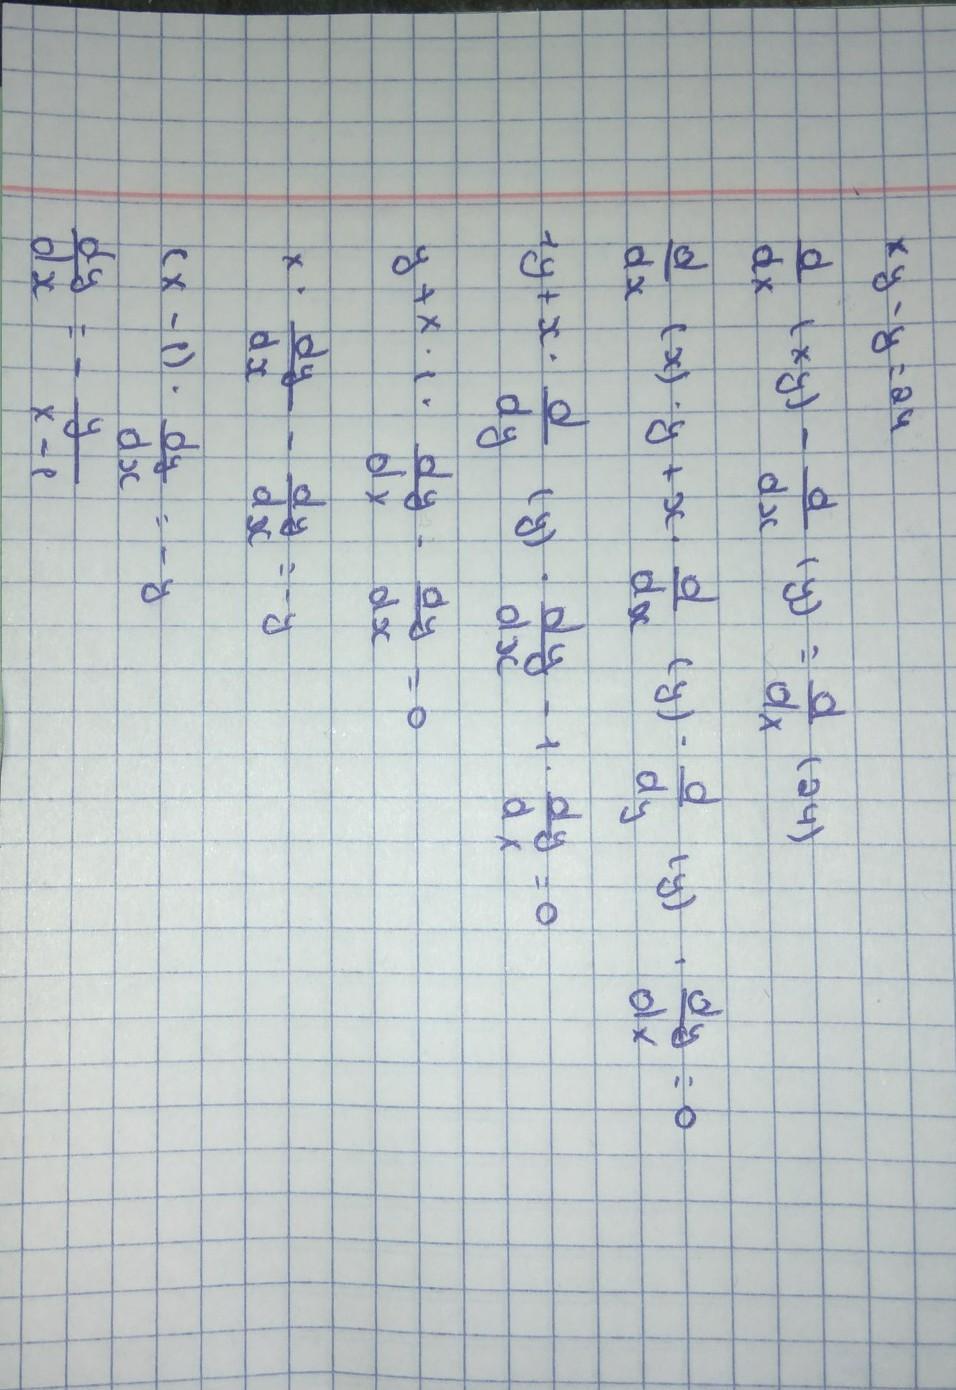 xy - y = 24
d/dx (xy) - d/dx (y) = d/dx (24)
d/dx (x) · y + x · d/dx (y) - d/dy (y) · dy/dx = 0
1y + x · d/dy (y) · dy/dx - 1 · dy/dx = 0
y + x · 1 · dy/dx - dy/dx = 0
x · dy/dx - dy/dx = -y
(x - 1) · dy/dx = -y
dy/dx = - y/x-1